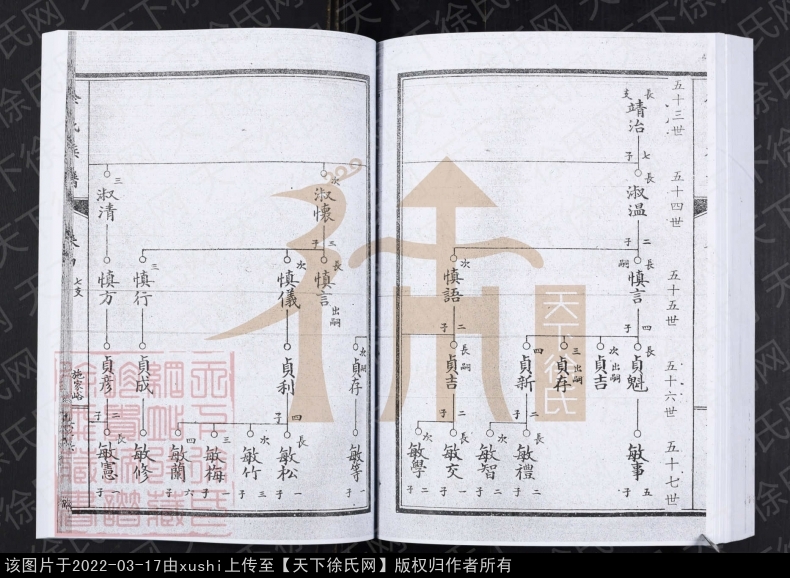 五十三世
五十四世
五十五世
五十六世
五十七世
長支
靖治
七子
長
淑温
二子
長嗣
慎言
四子
長
貞魁
敏事
五子
次出嗣
貞吉
三出嗣
貞存
四
貞新
二子
長
敏禮
二子
次
敏智
二子
次
慎語
二子
長嗣
貞吉
二子
長
敏交
一子
次
敏學
二子
次嗣
貞存
敏等
一子
次
淑懷
三子
長
慎言
出嗣
次
慎儀
貞利
四子
長
敏松
一子
次
敏竹
三子
三
敏梅
一子
四
敏蘭
六子
三
慎行
貞成
敏修
三
淑清
慎方
貞彥
二子
長
敏憲
一子
氏族譜
卷四
七支
施家峪
天下徐氏
天下徐氏网
该图片于2022-03-17由xushi上传至【天下徐氏网】版权归作者所有